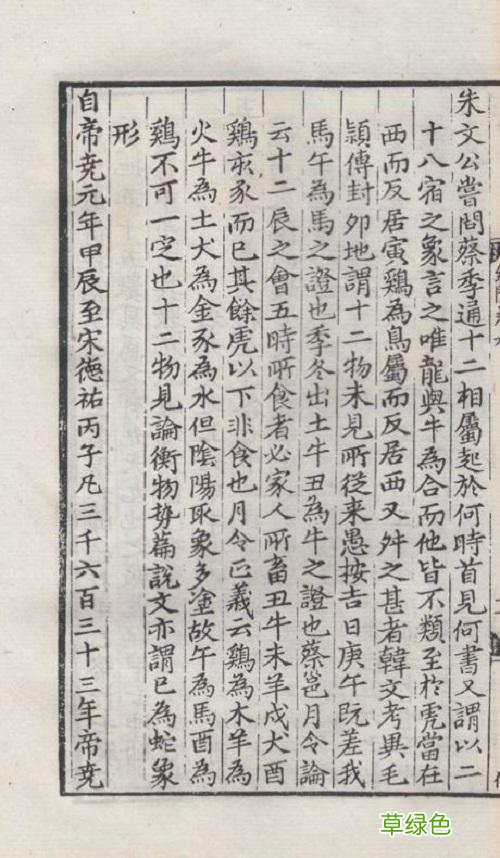 朱文公嘗問蔡季通十二相屬起於何時首見何書又謂以二
十八宿之象言之唯龍與牛為合而他皆不類至於虎當在
西而反居寅鷄為鳥屬而反居西又舛之甚者韓文考異毛
頴傳封卯地謂十二物未見所從来愚按吉日庚午既差我
馬午為馬之證也季冬出土牛丑為牛之證也蔡邕月令論
云十二辰之會五時所食者必家人所畜丑牛未羊戌犬酉
鷄亥豕而已其餘虎以下非食也月令正義云鷄為木羊為
火牛為土犬為金豕為水但陰陽取象多塗故午為馬酉為
鷄不可一定也十二物見論衡物勢篇說文亦謂巳為蛇象
形
自帝堯元年甲辰至宋德祐丙子凡三千六百三十三年帝堯
草绿色